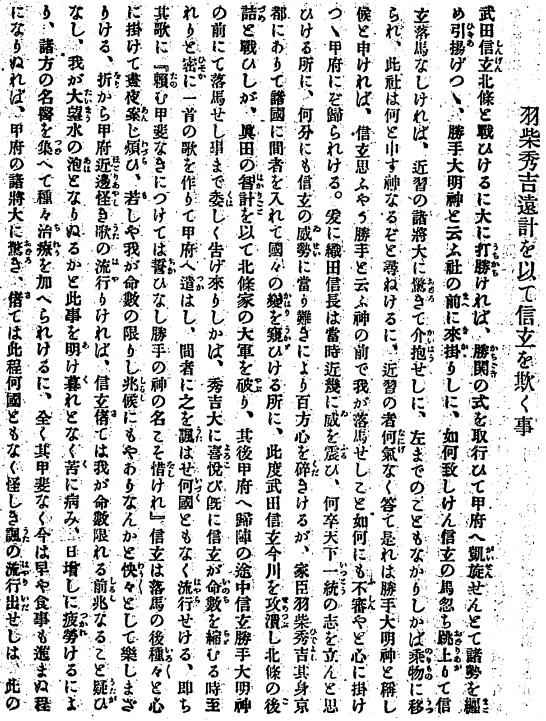 羽柴秀吉遠計を以て信玄を欺く事
武田信玄北條と戰ひけるに大に打勝ければ、勝閧の式を取行ひて甲府へ凱旋せんとて諸勢を纒
め引揚げつゝ、勝手大明神と云ふ社の前に來掛りしに、如何致しけん信玄の馬忽ち跳上りて信
玄落馬なしければ、近習の諸將大に驚きて介抱せしに、左までのこともなかりしかば乘物に移
られ、此社は何と申す神なるぞと尋ねけるに、近習の者何氣なく答て是れは勝手大明神と稱し
候と申ければ、信玄思ふやう勝手と云ふ神の前で我が落馬せしこと如何にも不審やと心に掛け
つゝ甲府にぞ歸られける。爰に織田信長は當時近幾に威を震ひ、何卒天下一統の志を立んと思
ひける所に、何分にも信玄の威勢に當り難きにより百方心を碎きけるが、家臣羽柴秀吉其身京
都にありて諸國に間者を入れて國々の變を窺ひける所に、此度武田信玄今川を攻潰し北條の後
詰と戰ひしが、眞田の智計を以て北條家の大軍を破り、其後甲府へ歸陣の途中信玄勝手大明神
の前にて落馬せし事まで委しく告げ來りしかば、秀吉大に喜悅び旣に信玄が命數を縮むる時至
れりと密に一首の歌を作りて甲府へ遣はし、間者に之を諷はせ何國ともなく流行せける、卽ち
其歌に『賴む甲斐なきにつけては誓ひなし勝手の神の名こそ惜けれ』信玄は落馬の後種々と心
に掛けて晝夜案じ煩ひ、若しや我が命數の限りし兆候にもやありなんかと怏々として樂しまざ
りける、折から甲府近邊怪き歌の流行りければ、信玄偖ては我が命數限れる前兆なること疑ひ
なし、我が大望水の泡となりぬるかと此事を明け暮れとなく苦に病み、日增しに疲勞けるによ
り、諸方の名醫を集へて種々治療を加へられけるに、全く其甲斐なく今は早や食事も進まぬ程
になりぬれば、甲府の諸將大に驚き、偖ては此程何國ともなく怪しき諷の流行出せしは、此の